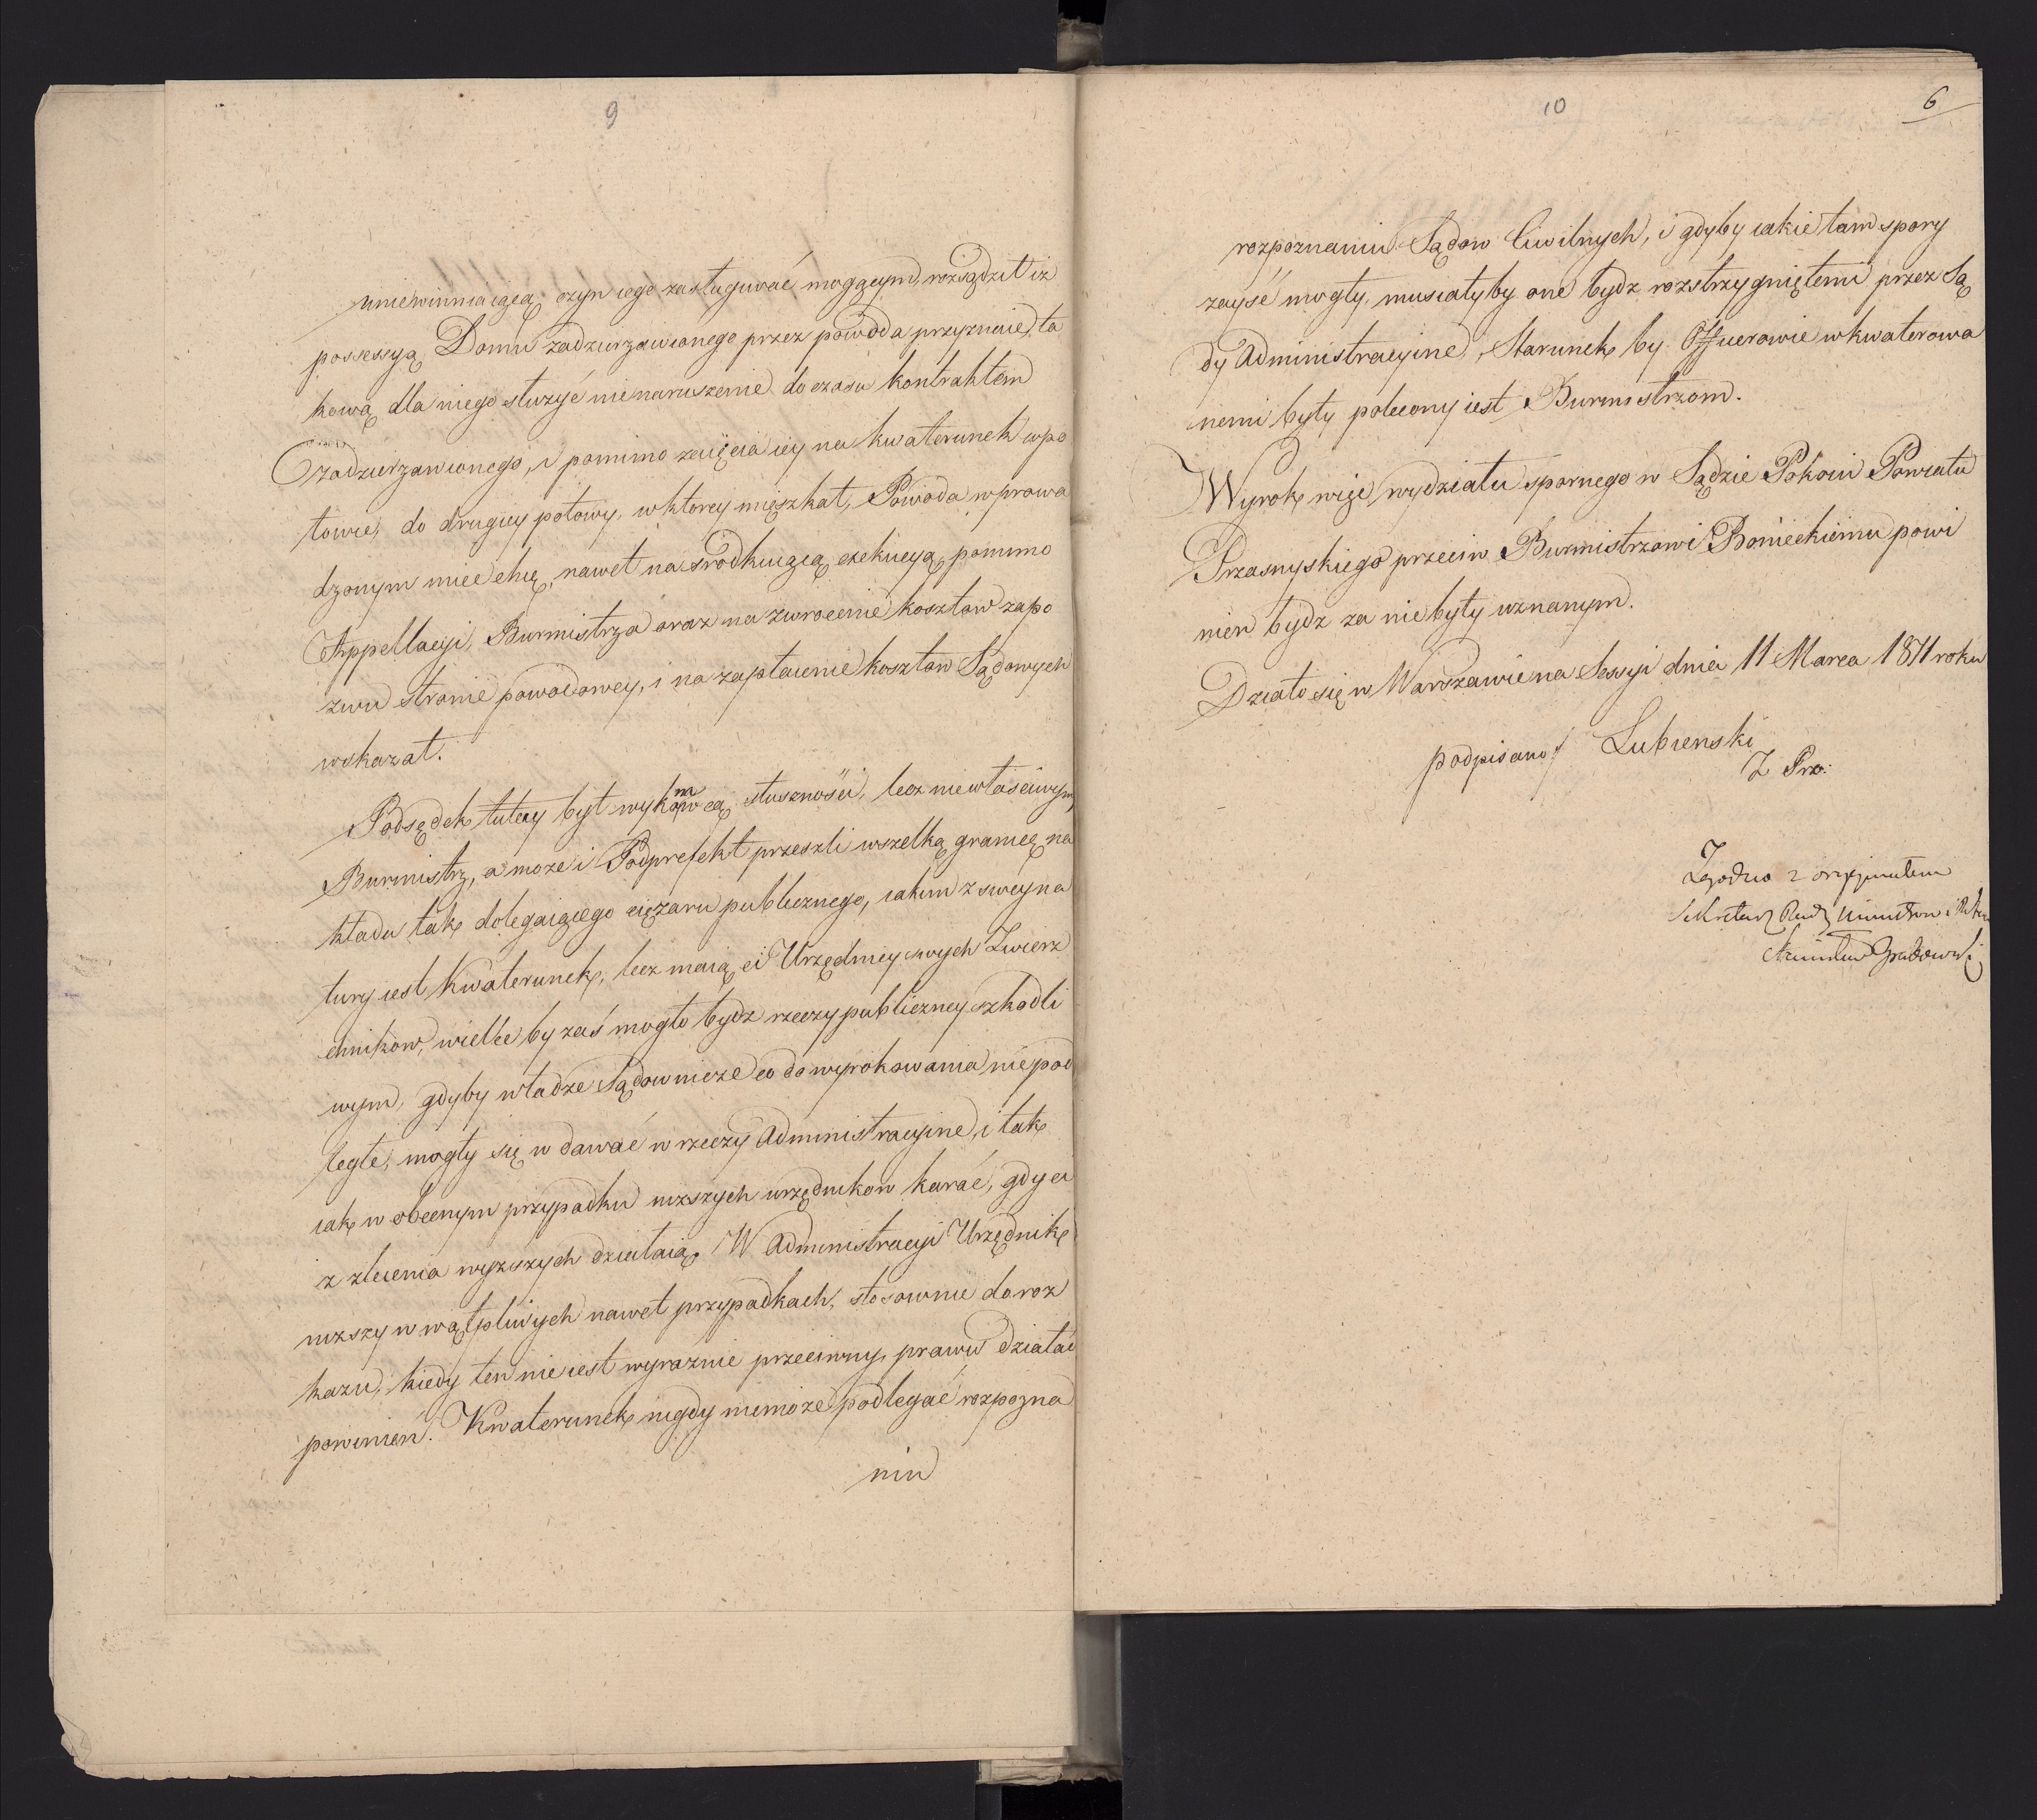 9
uniewinniaiącą czyn iego zasługiwać mogącym, rozsądził iż
possessyą Domu zadzierzawionego przez powoda przyznaie, ta
kową dla niego służyć nienaruszenie do czasu kontraktem
zadzierzawionego, i pomimo zaięcia iey na kwaterunek wpo
łowie, do drugiey połowy, wktorey mięszkał, Powoda wprowa
dzonym mieć chcę, nawet na srodkuiącą exekucyą, pomimo
Appellacyi, Burmistrza oraz na zwrocenie kosztow zapo
zwu stronie powodowey, i na zapłacenie kosztow Sądowych
wskazał.
Podsędek tutay był wykonawcą słuszności, lecz niewłaściwym,
Burmistrz, a może i Podprefekt przeszli wszelką granicę na
kładu tak dolegaiącego ciężaru publicznego, iakim z swey na
tury iest Kwaterunek, lecz maią ci Urzędnicy swych Zwierz
chnikow, wielce by zaś mogło bydz rzeczypubliczney szkodli
wym, gdyby władze Sądownicze co do wyrokowania niepod
ległe, mogły się wdawać w rzeczy Administracyine, i tak
iak w obecnym przypadku niższych urzędnikow karać, gdy ci
z zlecenia wyższych działaią. W Administracyi Urzędnik
niższy w wątpliwych nawet przypadkach, stosownie do roz
kazu, kiedy ten nie iest wyraznie przeciwny prawu działać
powinien. Kwaterunek nigdy niemoże podlegać rozpozna
niu
10
6
rozpoznaniu Sądow Cywilnych, i gdyby iakie tam spory
zayść mogły, musiałyby one bydz rozstrzygniętemi przez Są
dy Administracyine, Starunek by Officerowie wkwaterowa
nemi były polecony iest Burmistrzom.
Wyrok więc wydziału spornego w Sądzie Pokoiu Powiatu
Przasnyskiego przeciw Burmistrzowi Bonieckiemu powi
nien bydz za niebyły uznanym.
Działo się w Warszawie na Sessyi dnia 11 Marca 1811 roku
podpisano/ Lubienski
Z Pro:
Zgodno z oryginałem
Sekretarz Rady Ministrow
Stanisław Grabowski